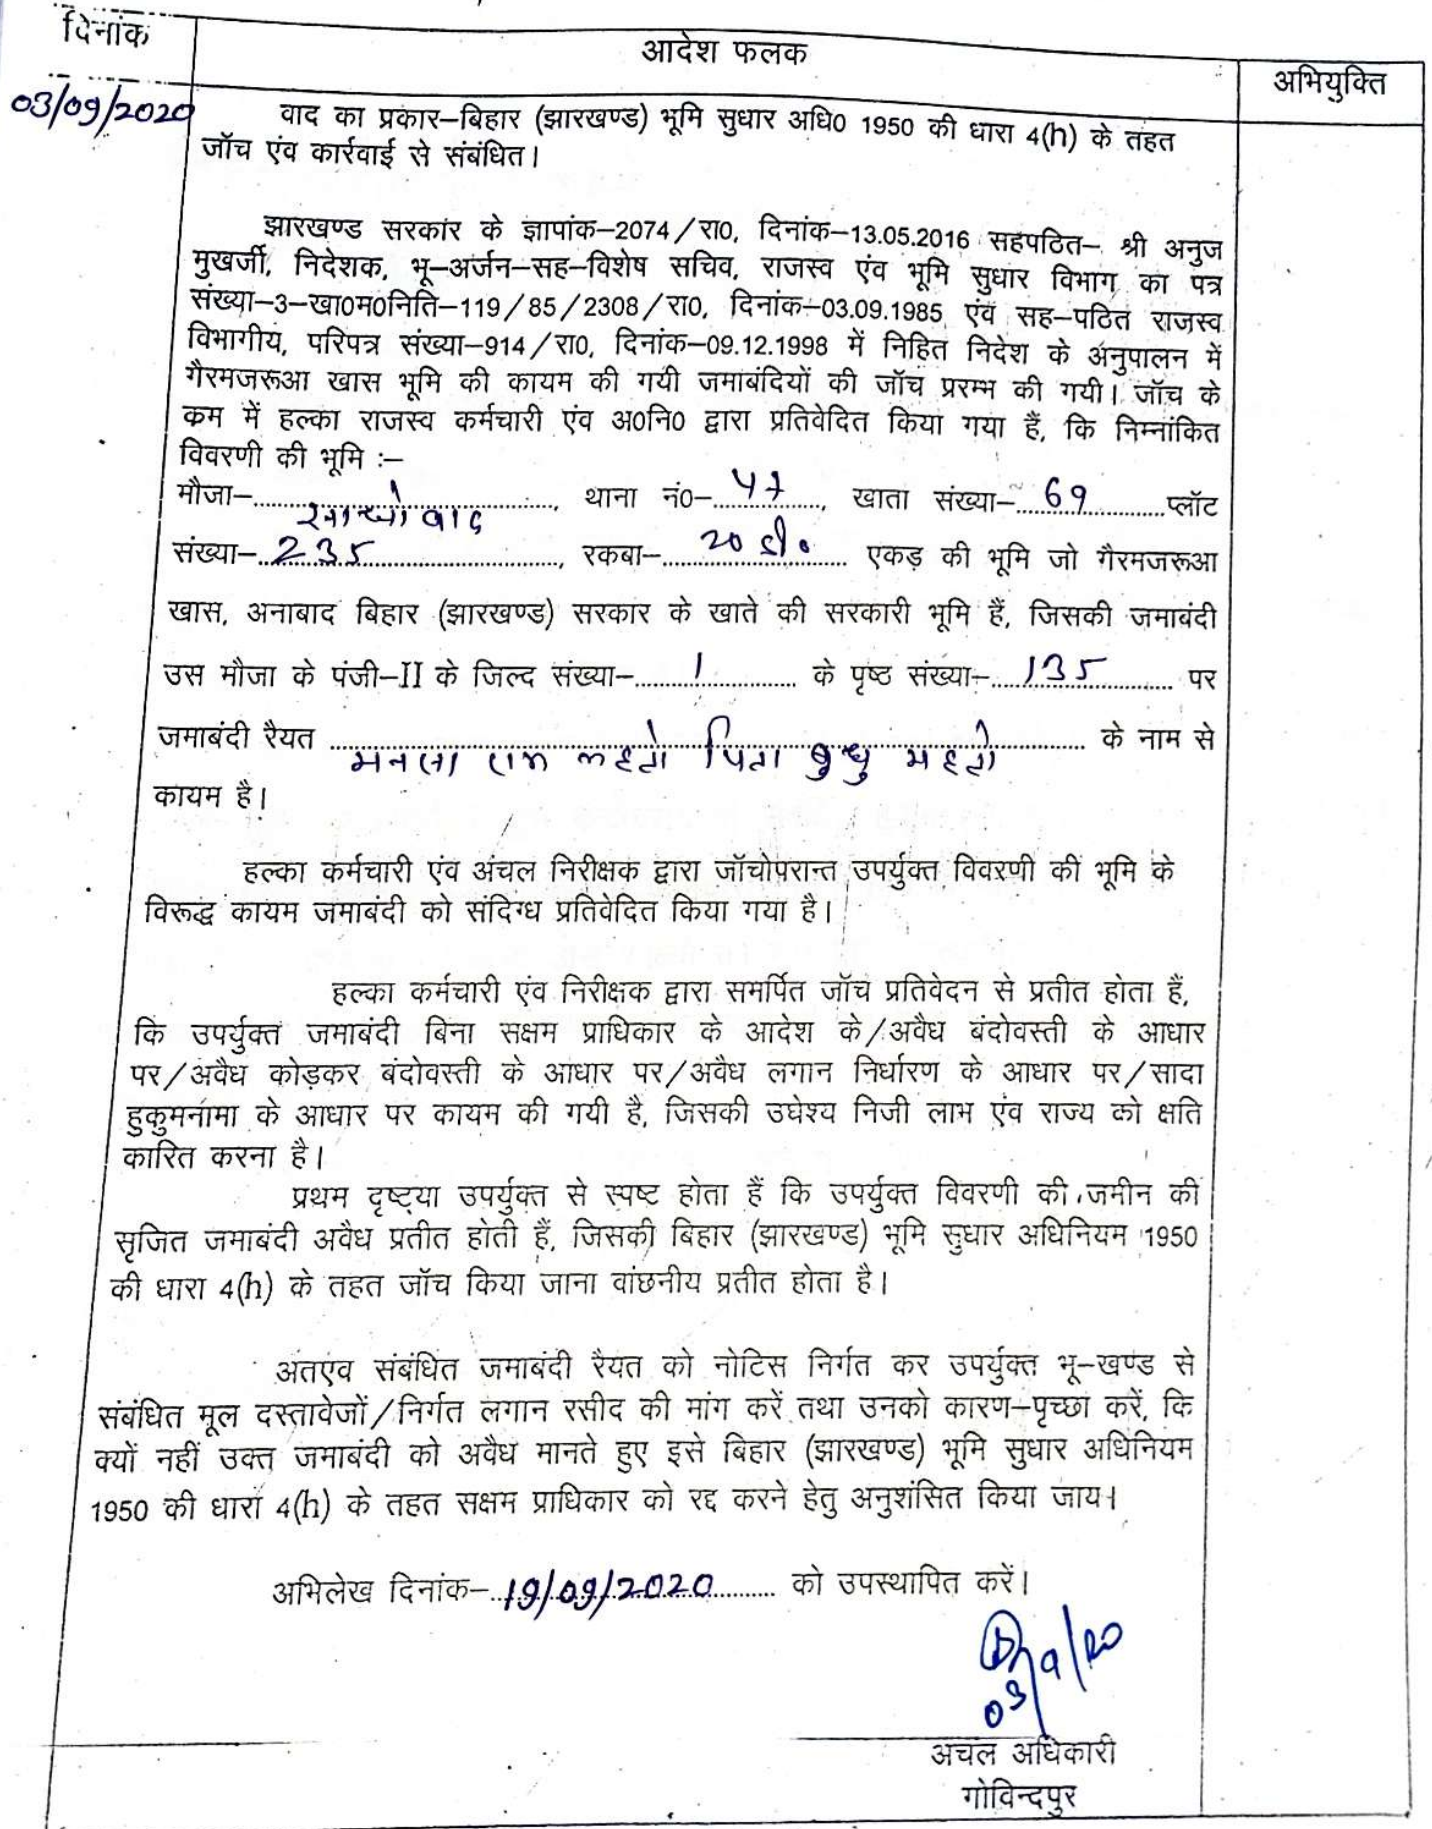 दिनांक
आदेश फलक
अभियुक्ति
03/09/2020
वाद का प्रकार–बिहार (झारखण्ड) भूमि सुधार अधि0 1950 की धारा 4(h) के तहत
जॉच एंव कार्रवाई से संबंधित।
झारखण्ड सरकार के ज्ञापांक–2074/रा0, दिनांक–13.05.2016 सहपठित– श्री अनुज
मुखर्जी, निदेशक, भू–अर्जन–सह–विशेष सचिव, राजस्व एंव भूमि सुधार विभाग का पत्र
संख्या–3–खा0म0निति–119/85/2308/रा0, दिनांक–03.09.1985 एंव सह–पठित राजस्व
विभागीय, परिपत्र संख्या–914/रा0, दिनांक–09.12.1998 में निहित निदेश के अनुपालन में
गैरमजरूआ खास भूमि की कायम की गयी जमाबंदियों की जॉच प्ररम्भ की गयी। जॉच के
कम में हल्का राजस्व कर्मचारी एंव अ0नि0 द्वारा प्रतिवेदित किया गया हैं, कि निम्नांकित
विवरणी की भूमि :–
मौजा–...................., थाना नं0– 47, खाता संख्या– 69 प्लॉट
संख्या– 235, रकबा– 20 डी० एकड़ की भूमि जो गैरमजरूआ
खास, अनाबाद बिहार (झारखण्ड) सरकार के खाते की सरकारी भूमि हैं, जिसकी जमाबंदी
उस मौजा के पंजी–II के जिल्द संख्या– 1 के पृष्ठ संख्या– 135 पर
जमाबंदी रैयत मनसा राम महतो पिता बुधु महतो के नाम से
कायम है।
हल्का कर्मचारी एंव अंचल निरीक्षक द्वारा जॉचोपरान्त उपर्युक्त विवरणी की भूमि के
विरूद्ध कायम जमाबंदी को संदिग्ध प्रतिवेदित किया गया है।
हल्का कर्मचारी एंव निरीक्षक द्वारा समर्पित जॉच प्रतिवेदन से प्रतीत होता हैं,
कि उपर्युक्त जमाबंदी बिना सक्षम प्राधिकार के आदेश के/अवैध बंदोवस्ती के आधार
पर/अवैध कोड़कर बंदोवस्ती के आधार पर/अवैध लगान निर्धारण के आधार पर/सादा
हुकुमनामा के आधार पर कायम की गयी है, जिसकी उघेश्य निजी लाभ एंव राज्य को क्षति
कारित करना है।
प्रथम दृष्ट्या उपर्युक्त से स्पष्ट होता हैं कि उपर्युक्त विवरणी की जमीन की
सृजित जमाबंदी अवैध प्रतीत होती हैं, जिसकी बिहार (झारखण्ड) भूमि सुधार अधिनियम 1950
की धारा 4(h) के तहत जॉच किया जाना वांछनीय प्रतीत होता है।
अतएव संबंधित जमाबंदी रैयत को नोटिस निर्गत कर उपर्युक्त भू–खण्ड से
संबंधित मूल दस्तावेजों/निर्गत लगान रसीद की मांग करें तथा उनको कारण–पृच्छा करें, कि
क्यों नहीं उक्त जमाबंदी को अवैध मानते हुए इसे बिहार (झारखण्ड) भूमि सुधार अधिनियम
1950 की धारा 4(h) के तहत सक्षम प्राधिकार को रद्द करने हेतु अनुशंसित किया जाय।
अभिलेख दिनांक– 19/09/2020 को उपस्थापित करें।
03/9/20
अचल अधिकारी
गोविन्दपुर